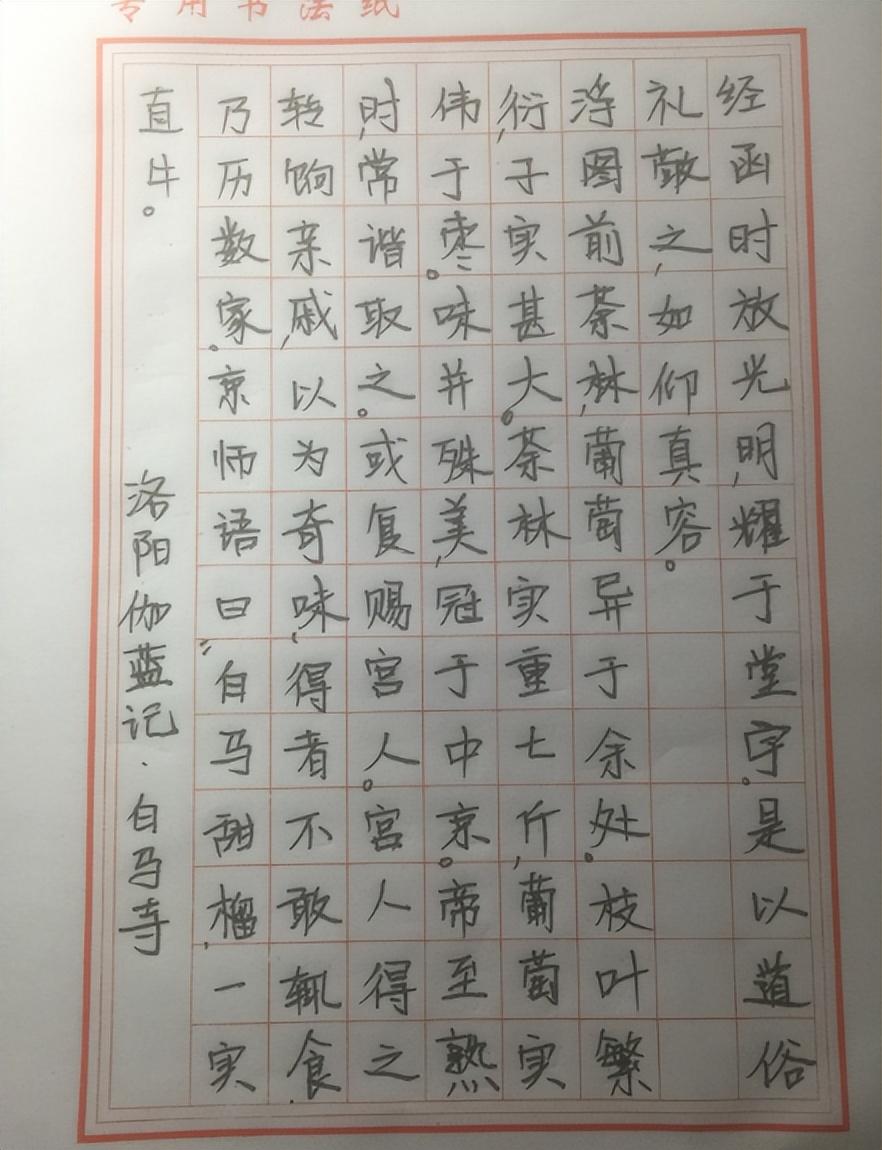 专用书法纸
经函时放光明,耀于堂宇。是以道俗
礼敬之,如仰真容。
浮图前荼林,葡萄异于余处。枝叶繁
衍,子实甚大。荼林实重七斤,葡萄实
伟于枣。味并殊美,冠于中京。帝至熟
时,常谐取之。或复赐宫人。宫人得之
转饷亲戚,以为奇味,得者不敢辄食,
乃历数家。京师语曰:“白马甜榴,一实
直牛。
洛阳伽蓝记·白马寺